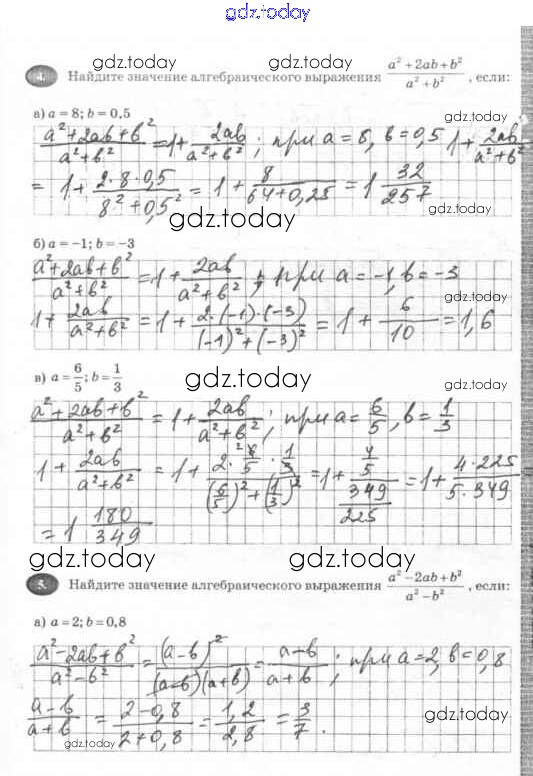 gdz.today
gdz.today gdz.today
4. Найдите значение алгебраического выражения (a² + 2ab + b²)/(a² + b²), если:
а) a = 8; b = 0,5 gdz.today
(a² + 2ab + b²)/(a² + b²) = 1 + 2ab/(a² + b²); при a = 8, b = 0,5 1 + 2ab/(a² + b²)
= 1 + (2 · 8 · 0,5)/(8² + 0,5²) = 1 + 8/(64 + 0,25) = 1 32/257
gdz.today gdz.today
б) a = −1; b = −3
(a² + 2ab + b²)/(a² + b²) = 1 + 2ab/(a² + b²); при a = −1, b = −3
gdz.today
1 + 2ab/(a² + b²) = 1 + (2 · (−1) · (−3))/((−1)² + (−3)²) = 1 + 6/10 = 1,6
в) a = 6/5; b = 1/3
gdz.today gdz.today
(a² + 2ab + b²)/(a² + b²) = 1 + 2ab/(a² + b²); при a = 6/5, b = 1/3
1 + 2ab/(a² + b²) = 1 + (2 · 6/5 · 1/3)/((6/5)² + (1/3)²) = 1 + (4/5)/(349/225) = 1 + (4 · 225)/(5 · 349)
= 1 180/349
gdz.today gdz.today
5. Найдите значение алгебраического выражения (a² − 2ab + b²)/(a² − b²), если:
а) a = 2; b = 0,8 gdz.today
(a² − 2ab + b²)/(a² − b²) = (a − b)²/((a − b)(a + b)) = (a − b)/(a + b); при a = 2, b = 0,8
(a − b)/(a + b) = (2 − 0,8)/(2 + 0,8) = 1,2/2,8 = 3/7.
gdz.today gdz.today